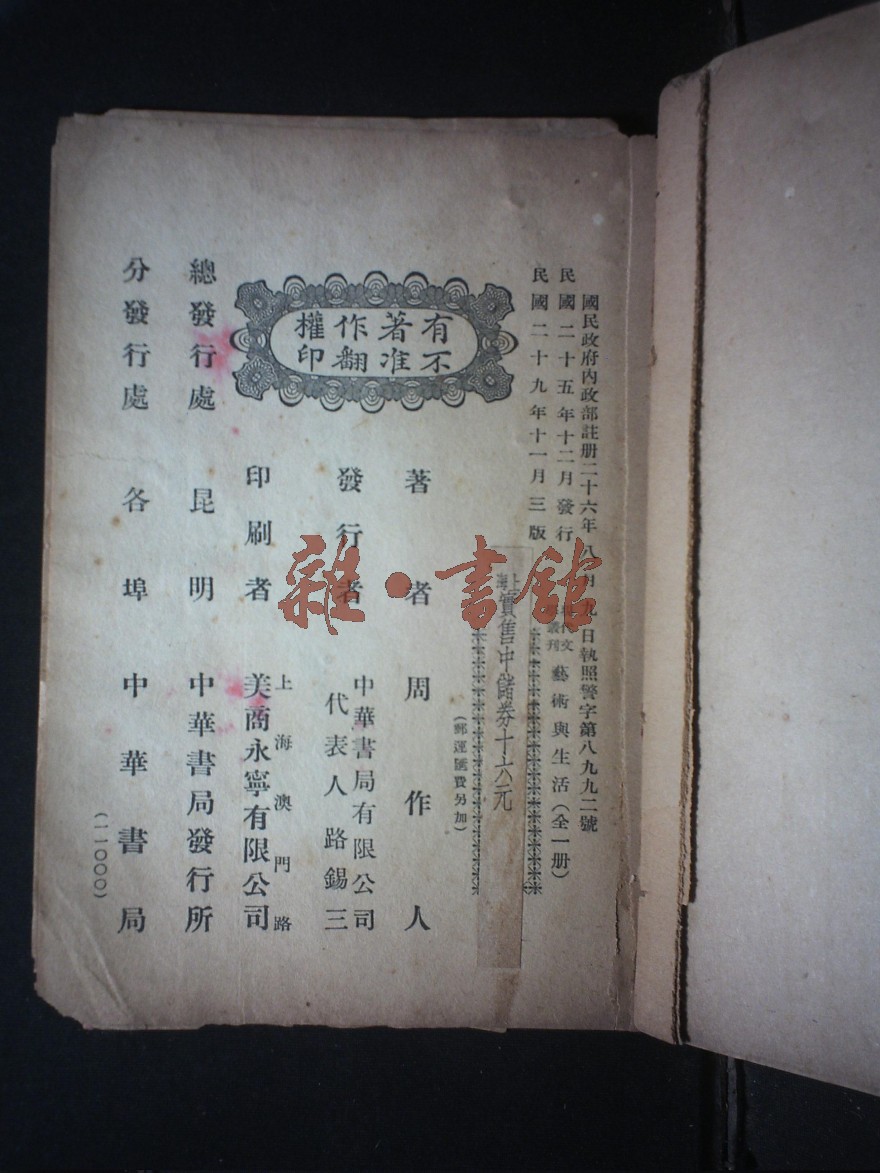 國民政府內政部註册二十六年八月九日執照警字第八九九二號
民國二十五年十二月發行
民國二十九年十一月三版
現代文
學叢刊
藝術與生活(全一册)
實售中儲券十六元
(郵運匯費另加)
有不著准作翻權印
著者 周作人
發行者 中華書局有限公司
代表人路錫三
印刷者 上海澳門路
美商永寧有限公司
總發行處 昆明 中華書局發行所
分發行處 各埠 中華書局
(一一〇〇〇)
雜·書館